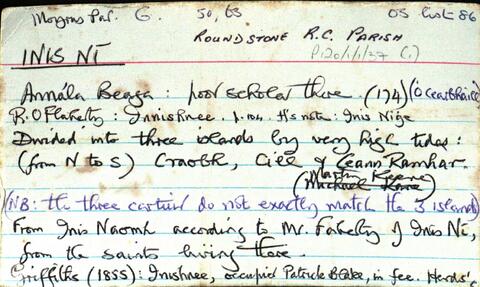 Morgans Par. G. 50, 63 OS list 86
ROUNDSTONE R.C. PARISH
P120/1/1/37 (1)
INIS NÍ
Annála Beaga: poor scholar there. (174) (Ó Cearbháill)
R. O Flaherty: Innishnee. p. 104. H's note: Inis Nige
Divided into three islands by very high tides:
(from N to S) Craobh, Cill & Ceann Ramhar.
(Michael Kane)
(NB: the three cartúirí do not exactly match the 3 islands)
From Inis Naomh according to Mr. Faherty of Inis Ní,
from the saints living there.
Griffiths (1855): Inishnee, occupied Patrick Blake, in fee. Herds'